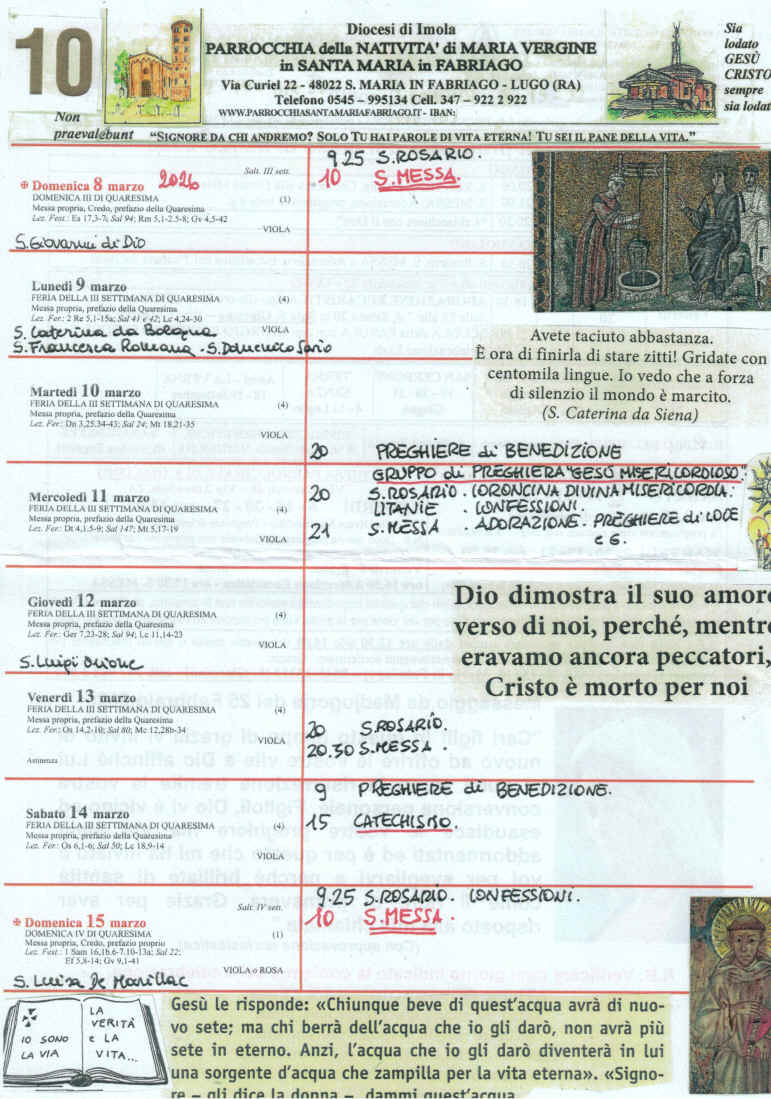 10
Diocesi di Imola
PARROCCHIA della NATIVITA' di MARIA VERGINE
in SANTA MARIA in FABRIAGO
Via Curiel 22 - 48022 S. MARIA IN FABRIAGO - LUGO (RA)
Telefono 0545 – 995134 Cell. 347 – 922 2 922
WWW.PARROCCHIASANTAMARIAFABRIAGO.IT - IBAN:
Sia
lodato
GESÙ
CRISTO
sempre
sia lodat
Non
praevalebunt
“SIGNORE DA CHI ANDREMO? SOLO TU HAI PAROLE DI VITA ETERNA! TU SEI IL PANE DELLA VITA.”
Salt. III sett.
✠ Domenica 8 marzo 2026
DOMENICA III DI QUARESIMA (1)
Messa propria, Credo, prefazio della Quaresima
Lez. Fest.: Es 17,3-7; Sal 94; Rm 5,1-2.5-8; Gv 4,5-42
VIOLA
S. Giovanni di Dio
9.25 S. ROSARIO.
10 S. MESSA.
Lunedì 9 marzo
FERIA DELLA III SETTIMANA DI QUARESIMA (4)
Messa propria, prefazio della Quaresima
Lez. Fer.: 2 Re 5,1-15a; Sal 41 e 42; Lc 4,24-30
VIOLA
S. Caterina da Bologna
S. Francesca Romana - S. Domenico Savio
Avete taciuto abbastanza.
È ora di finirla di stare zitti! Gridate con
centomila lingue. Io vedo che a forza
di silenzio il mondo è marcito.
(S. Caterina da Siena)
Martedì 10 marzo
FERIA DELLA III SETTIMANA DI QUARESIMA (4)
Messa propria, prefazio della Quaresima
Lez. Fer.: Dn 3,25.34-43; Sal 24; Mt 18,21-35
VIOLA
20 PREGHIERE di BENEDIZIONE
Mercoledì 11 marzo
FERIA DELLA III SETTIMANA DI QUARESIMA (4)
Messa propria, prefazio della Quaresima
Lez. Fer.: Dt 4,1.5-9; Sal 147; Mt 5,17-19
VIOLA
GRUPPO di PREGHIERA "GESÙ MISERICORDIOSO".
20 S. ROSARIO. CORONCINA DIVINA MISERICORDIA.
LITANIE . CONFESSIONI.
21 S. MESSA . ADORAZIONE. PREGHIERE di LODE
e G.
Giovedì 12 marzo
FERIA DELLA III SETTIMANA DI QUARESIMA (4)
Messa propria, prefazio della Quaresima
Lez. Fer.: Ger 7,23-28; Sal 94; Lc 11,14-23
VIOLA
S. Luigi Orione
Dio dimostra il suo amore
verso di noi, perché, mentre
eravamo ancora peccatori,
Cristo è morto per noi
Venerdì 13 marzo
FERIA DELLA III SETTIMANA DI QUARESIMA (4)
Messa propria, prefazio della Quaresima
Lez. Fer.: Os 14,2-10; Sal 80; Mc 12,28b-34
VIOLA
Astinenza
20 S. ROSARIO.
20.30 S. MESSA.
Sabato 14 marzo
FERIA DELLA III SETTIMANA DI QUARESIMA (4)
Messa propria, prefazio della Quaresima
Lez. Fer.: Os 6,1-6; Sal 50; Lc 18,9-14
VIOLA
9 PREGHIERE di BENEDIZIONE.
15 CATECHISMO.
Salt. IV sett.
✠ Domenica 15 marzo
DOMENICA IV DI QUARESIMA (1)
Messa propria, Credo, prefazio proprio
Lez. Fest.: 1 Sam 16,1b.6-7.10-13a; Sal 22;
Ef 5,8-14; Gv 9,1-41
VIOLA o ROSA
S. Luisa de Marillac
9.25 S. ROSARIO. CONFESSIONI.
10 S. MESSA.
IO SONO
LA VIA
LA
VERITÀ
e LA
VITA...
Gesù le risponde: «Chiunque beve di quest'acqua avrà di nuo-
vo sete; ma chi berrà dell'acqua che io gli darò, non avrà più
sete in eterno. Anzi, l'acqua che io gli darò diventerà in lui
una sorgente d'acqua che zampilla per la vita eterna». «Signo-
re – gli dice la donna –, dammi quest'acqua